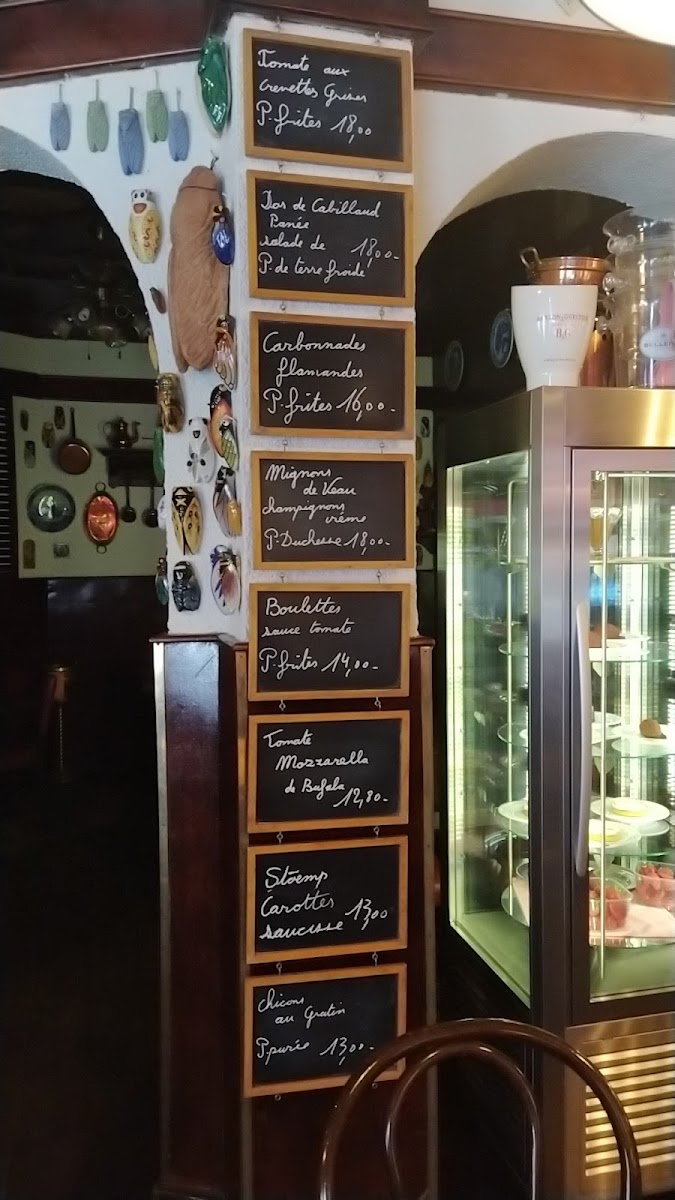 Tomate aux
crevettes Grises
P. frites 18,00
Dos de Cabillaud
Panée
salade de 18,00-
P. de terre froide
Carbonnades
flamandes
P. frites 16,00-
Mignons
de Veau
champignons
crème
P. Duchesse 18,00-
Boulettes
sauce tomate
P. frites 14,00-
Tomate
Mozzarella
de Bufala
12,80-
Stoemp
Carottes 13,00
saucisse
chicons
au Gratin
P. purée 13,00-